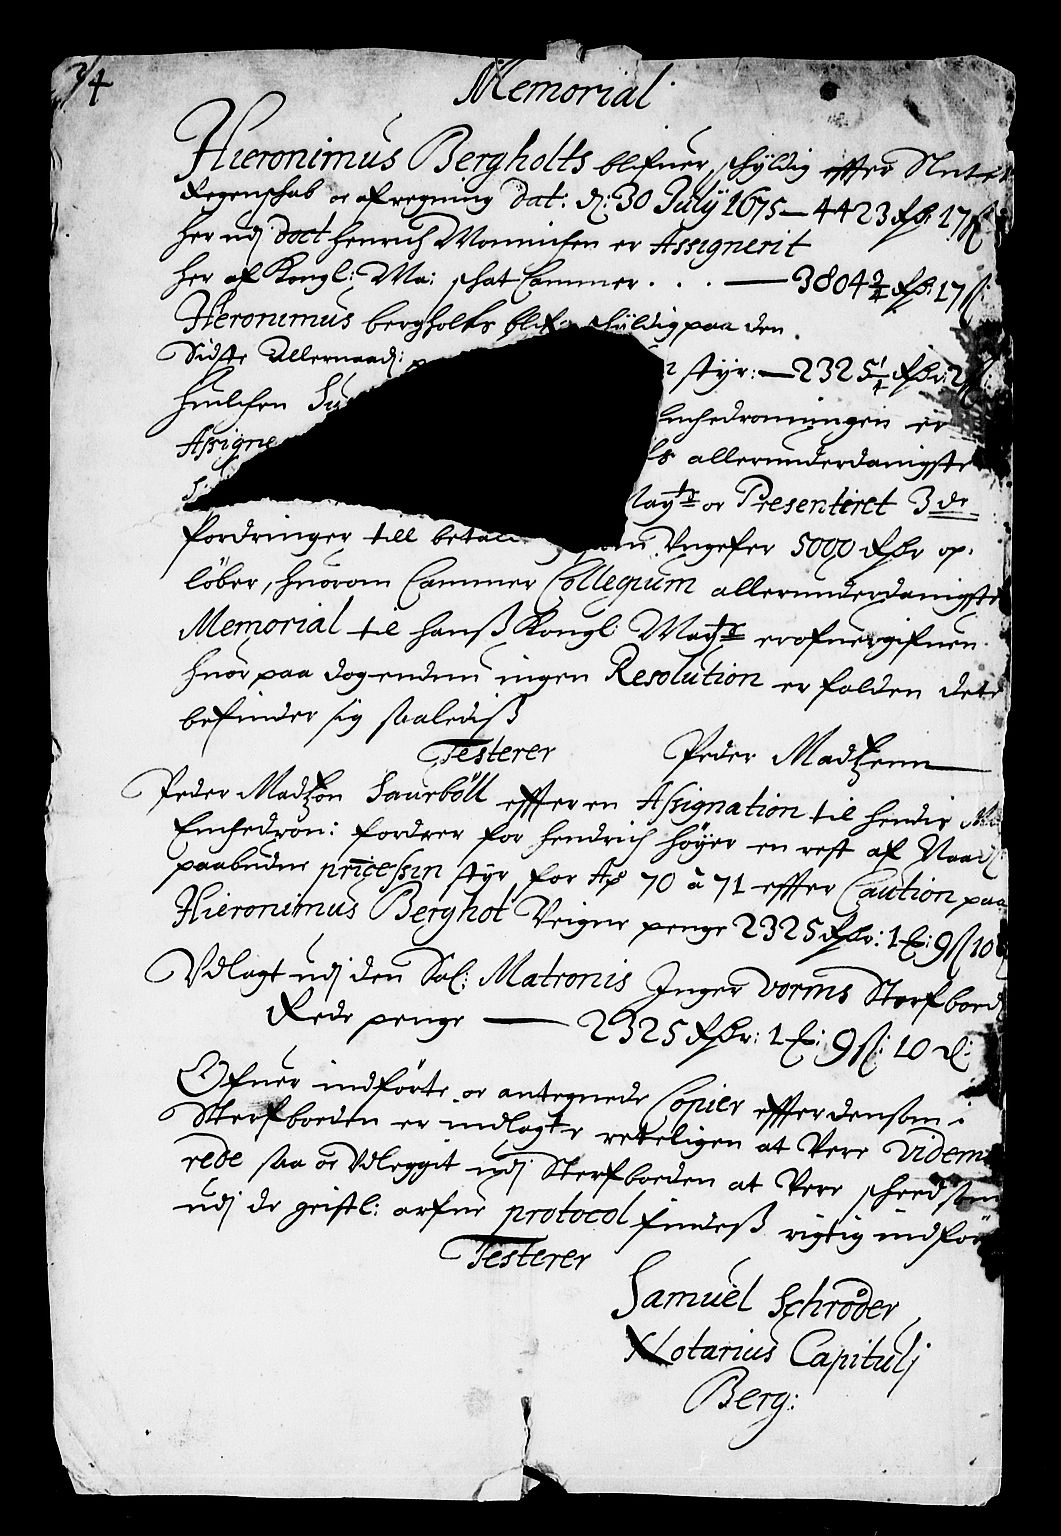 4
Memorial
Hieronimus Bergholts blifuer schÿldig effter Slute
Regenschab oc afregning dat: d: 30 Julÿ 1675 — 4423 Rdr: 17 ß
her udj doct henrich Monnichen er Assignerit
her af Kongl: Ma: schat Cammer . . . — 3804 Rdr: 17 ß
Hieronimus bergholts blif schÿldig paa den
Sidste Allernaad: stÿr: — 2325 1/4 Rdr: 2 ß:
huilchen
Assigne allerunderdanigste
Maÿtz oc Presenteret 3 de
fordringer till betal Ungefer 5000 Rdr op
löber, huorom Cammer Collegium allerunderdanigste
Memorial til hanß Kongl: Maÿtz erofuergifuen
huor paa dog endnu ingen Resolution er falden dete
befinder sig saalediß
Testerer Peder Madtzenn
Peder Madtzön Saurböll effter en Assignation til hendis
Emchedrön: fordrer for hendrich höÿer en rest af Naad:
paabudne princessin stÿr for Aº 70 à 71 effter Caution paa
Hieronimus Berghot Veigne penge 2325 Rdr: 1 : 9 ß 10
Udlagt udj den Sal: Matronis Inger Vorms Sterfboed
Rede penge — 2325 Rdr: 1 : 9 ß: 10 d:
Ofuer indförte oc antegnede Copier effter densom i
Sterfboeden er indlagt, retteligen at Vere Videm
rede saa oc Udleggit udj Sterfboeden at Vere scheed som
udj de geistl: arfue protocol findeß rigtig indför
Testerer
Samuel Schröder
Notarius Capitulj
Berg: